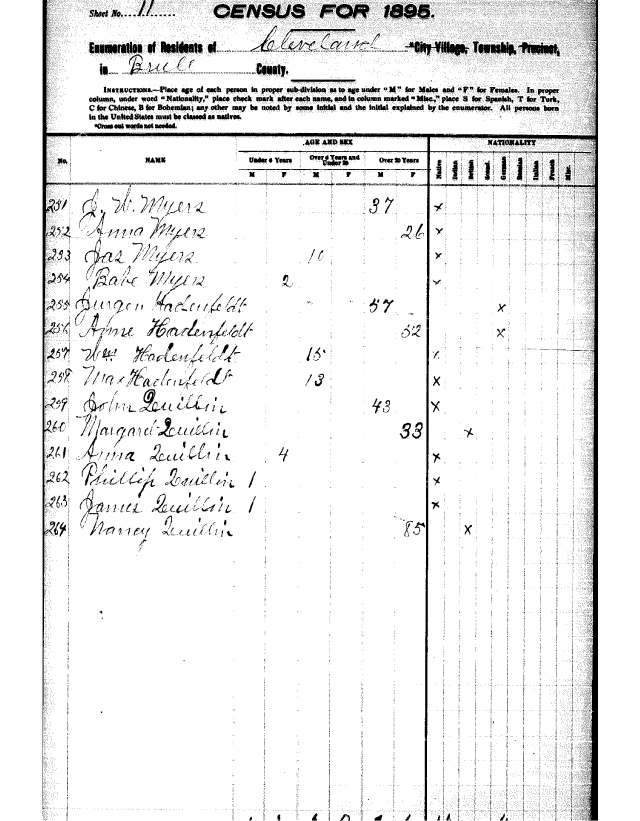 Sheet No. 11
CENSUS FOR 1895.
Enumeration of Residents of Cleveland *City Village, Township, Precinct,
in Brule County.
INSTRUCTIONS.—Place age of each person in proper sub-division as to age under "M" for Males and "F" for Females. In proper
column, under word "Nationality," place check mark after each name, and in column marked "Misc.," place S for Spanish, T for Turk,
C for Chinese, B for Bohemian; any other may be noted by some initial and the initial explained by the enumerator. All persons born
in the United States must be classed as natives.
*Cross out words not needed.
AGE AND SEX NATIONALITY
No. NAME Under 6 Years Over 6 Years and Under 20 Over 20 Years
M F M F M F Native Indian British Scand. German Russian Italian French Misc.
251 J. W. Myers 37 x
252 Anna Myers 26 x
253 Jas Myers 10 x
254 Babe Myers 2 x
255 Jurgen Hadenfeldt 57 x
256 Anne Hadenfeldt 52 x
257 Wm Hadenfeldt 15 x
258 Max Hadenfeldt 13 x
259 John Quillin 43 x
260 Margard Quillin 33 x
261 Anna Quillin 4 x
262 Phillip Quillin 1 x
263 James Quillin 1 x
264 Nancy Quillin 85 x